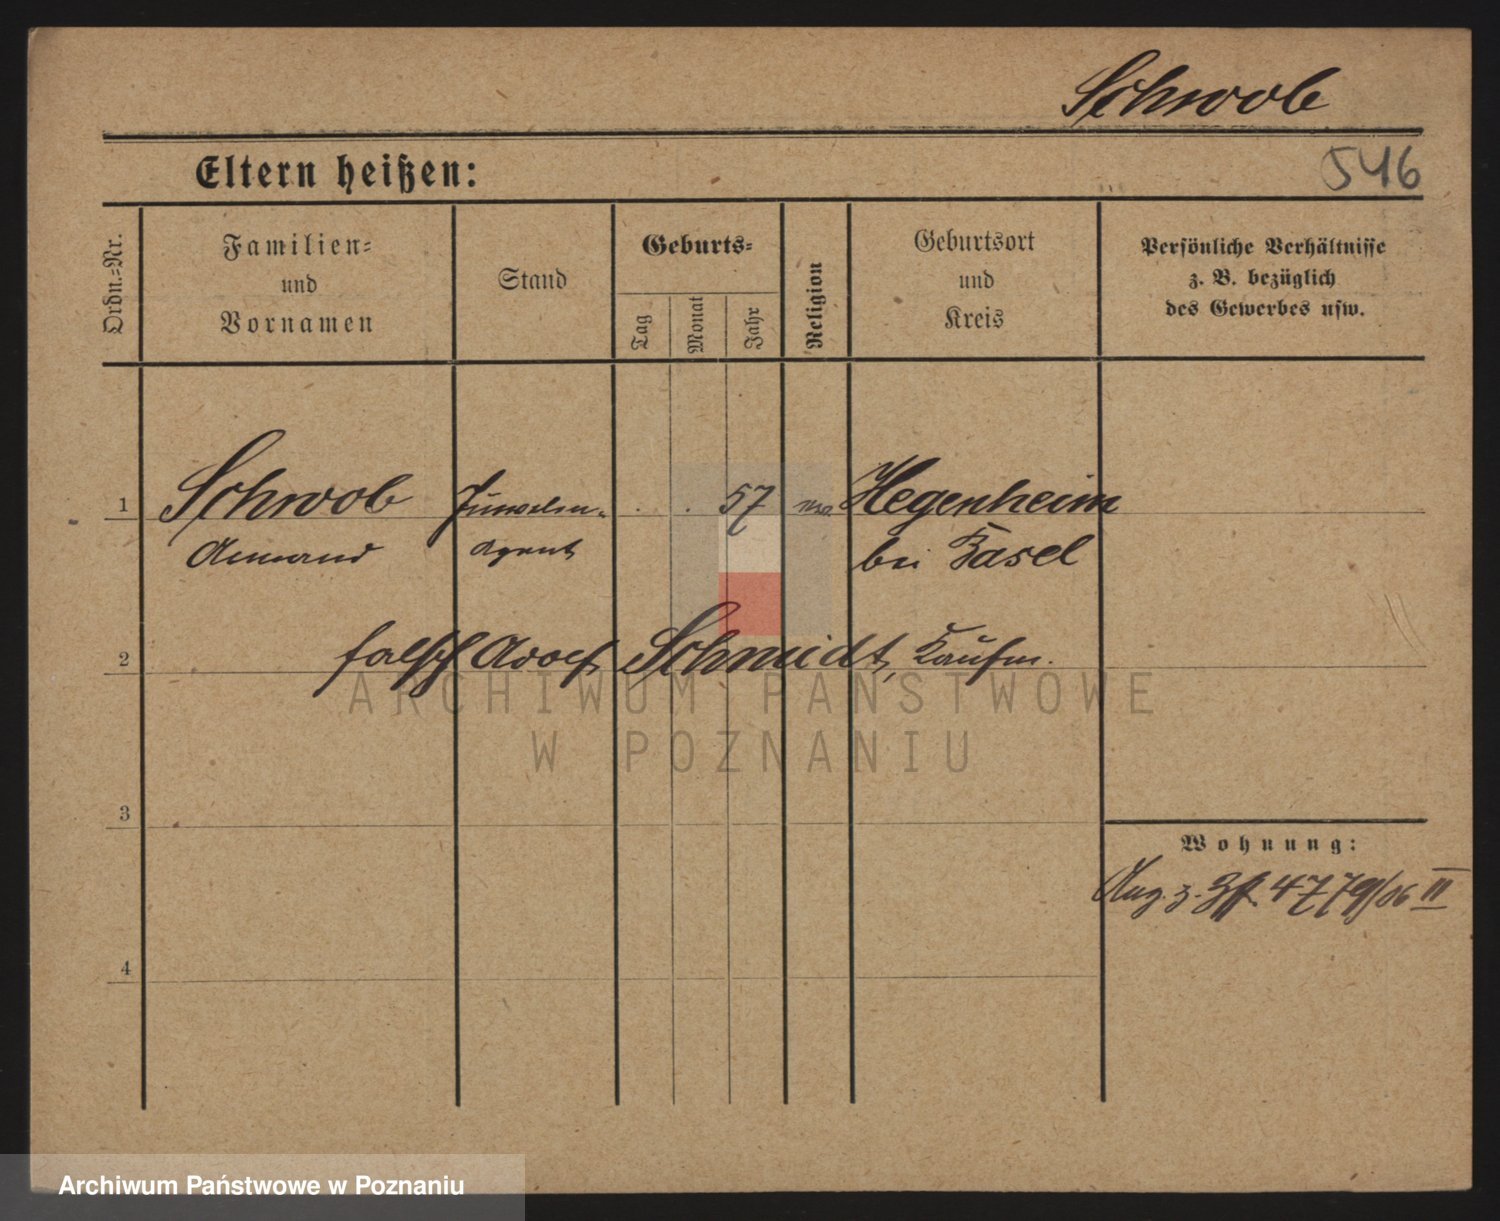 Schwob
Eltern heißen:
546
Ordn.=Nr.
Familien=
und
Vornamen
Stand
Geburts=
Tag
Monat
Jahr
Religion
Geburtsort
und
Kreis
Persönliche Verhältnisse
z. B. bezüglich
des Gewerbes usw.
1
Schwob Juwelen- . . 57 Hegenheim
Armand Agent bei Basel
2
falsch Adolf Schmidt, Kaufm.
ARCHIWUM PAŃSTWOWE
W POZNANIU
3
Wohnung:
Ang. z. 4779/06 II
4
Archiwum Państwowe w Poznaniu